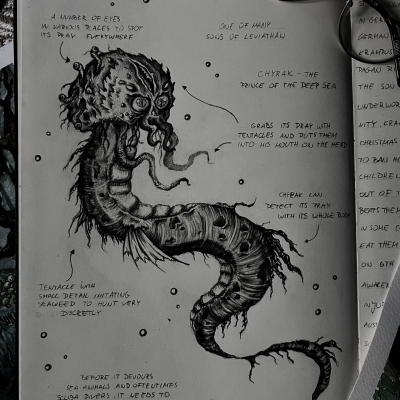 A NUMBER OF EYES
IN VARIOUS PLACES TO SPOT
ITS PRAY EVERYWHERE
ONE OF MANY
SONS OF LEVIATHAN
CHYRAK - THE
PRINCE OF THE DEEP SEA
GRABS ITS PRAY WITH
TENTACLES AND PUTS THEM
INTO HIS MOUTH ON THE HEAD
CHYRAK CAN
DETECT ITS PRAY
WITH ITS WHOLE BODY
TENTACLE WITH
SMALL DETAIL IMITATING
SEAWEED TO HUNT VERY
DISCRETLY
BEFORE IT DEVOURS
SEA ANIMALS AND OFTENTIMES
SCUBA DIVERS, IT NEEDS TO
IN GER
GERMAN
KRAMPUS
PAGAN R
THE SON
UNDERWOR
NITY, KRA
CHRISTMAS
TO BAN H
CHILDREN
OUT OF T
BEATS THEM
IN SOME C
EAT THEM
ON 6TH
AWAKEN
INJU
AUS